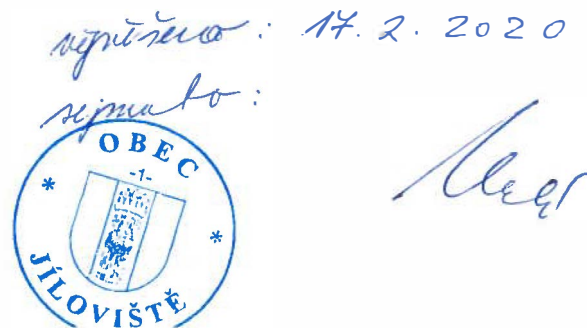 vyvěšeno: 17. 2. 2020
sejmuto:
OBEC
-1-
* *
JÍLOVIŠTĚ